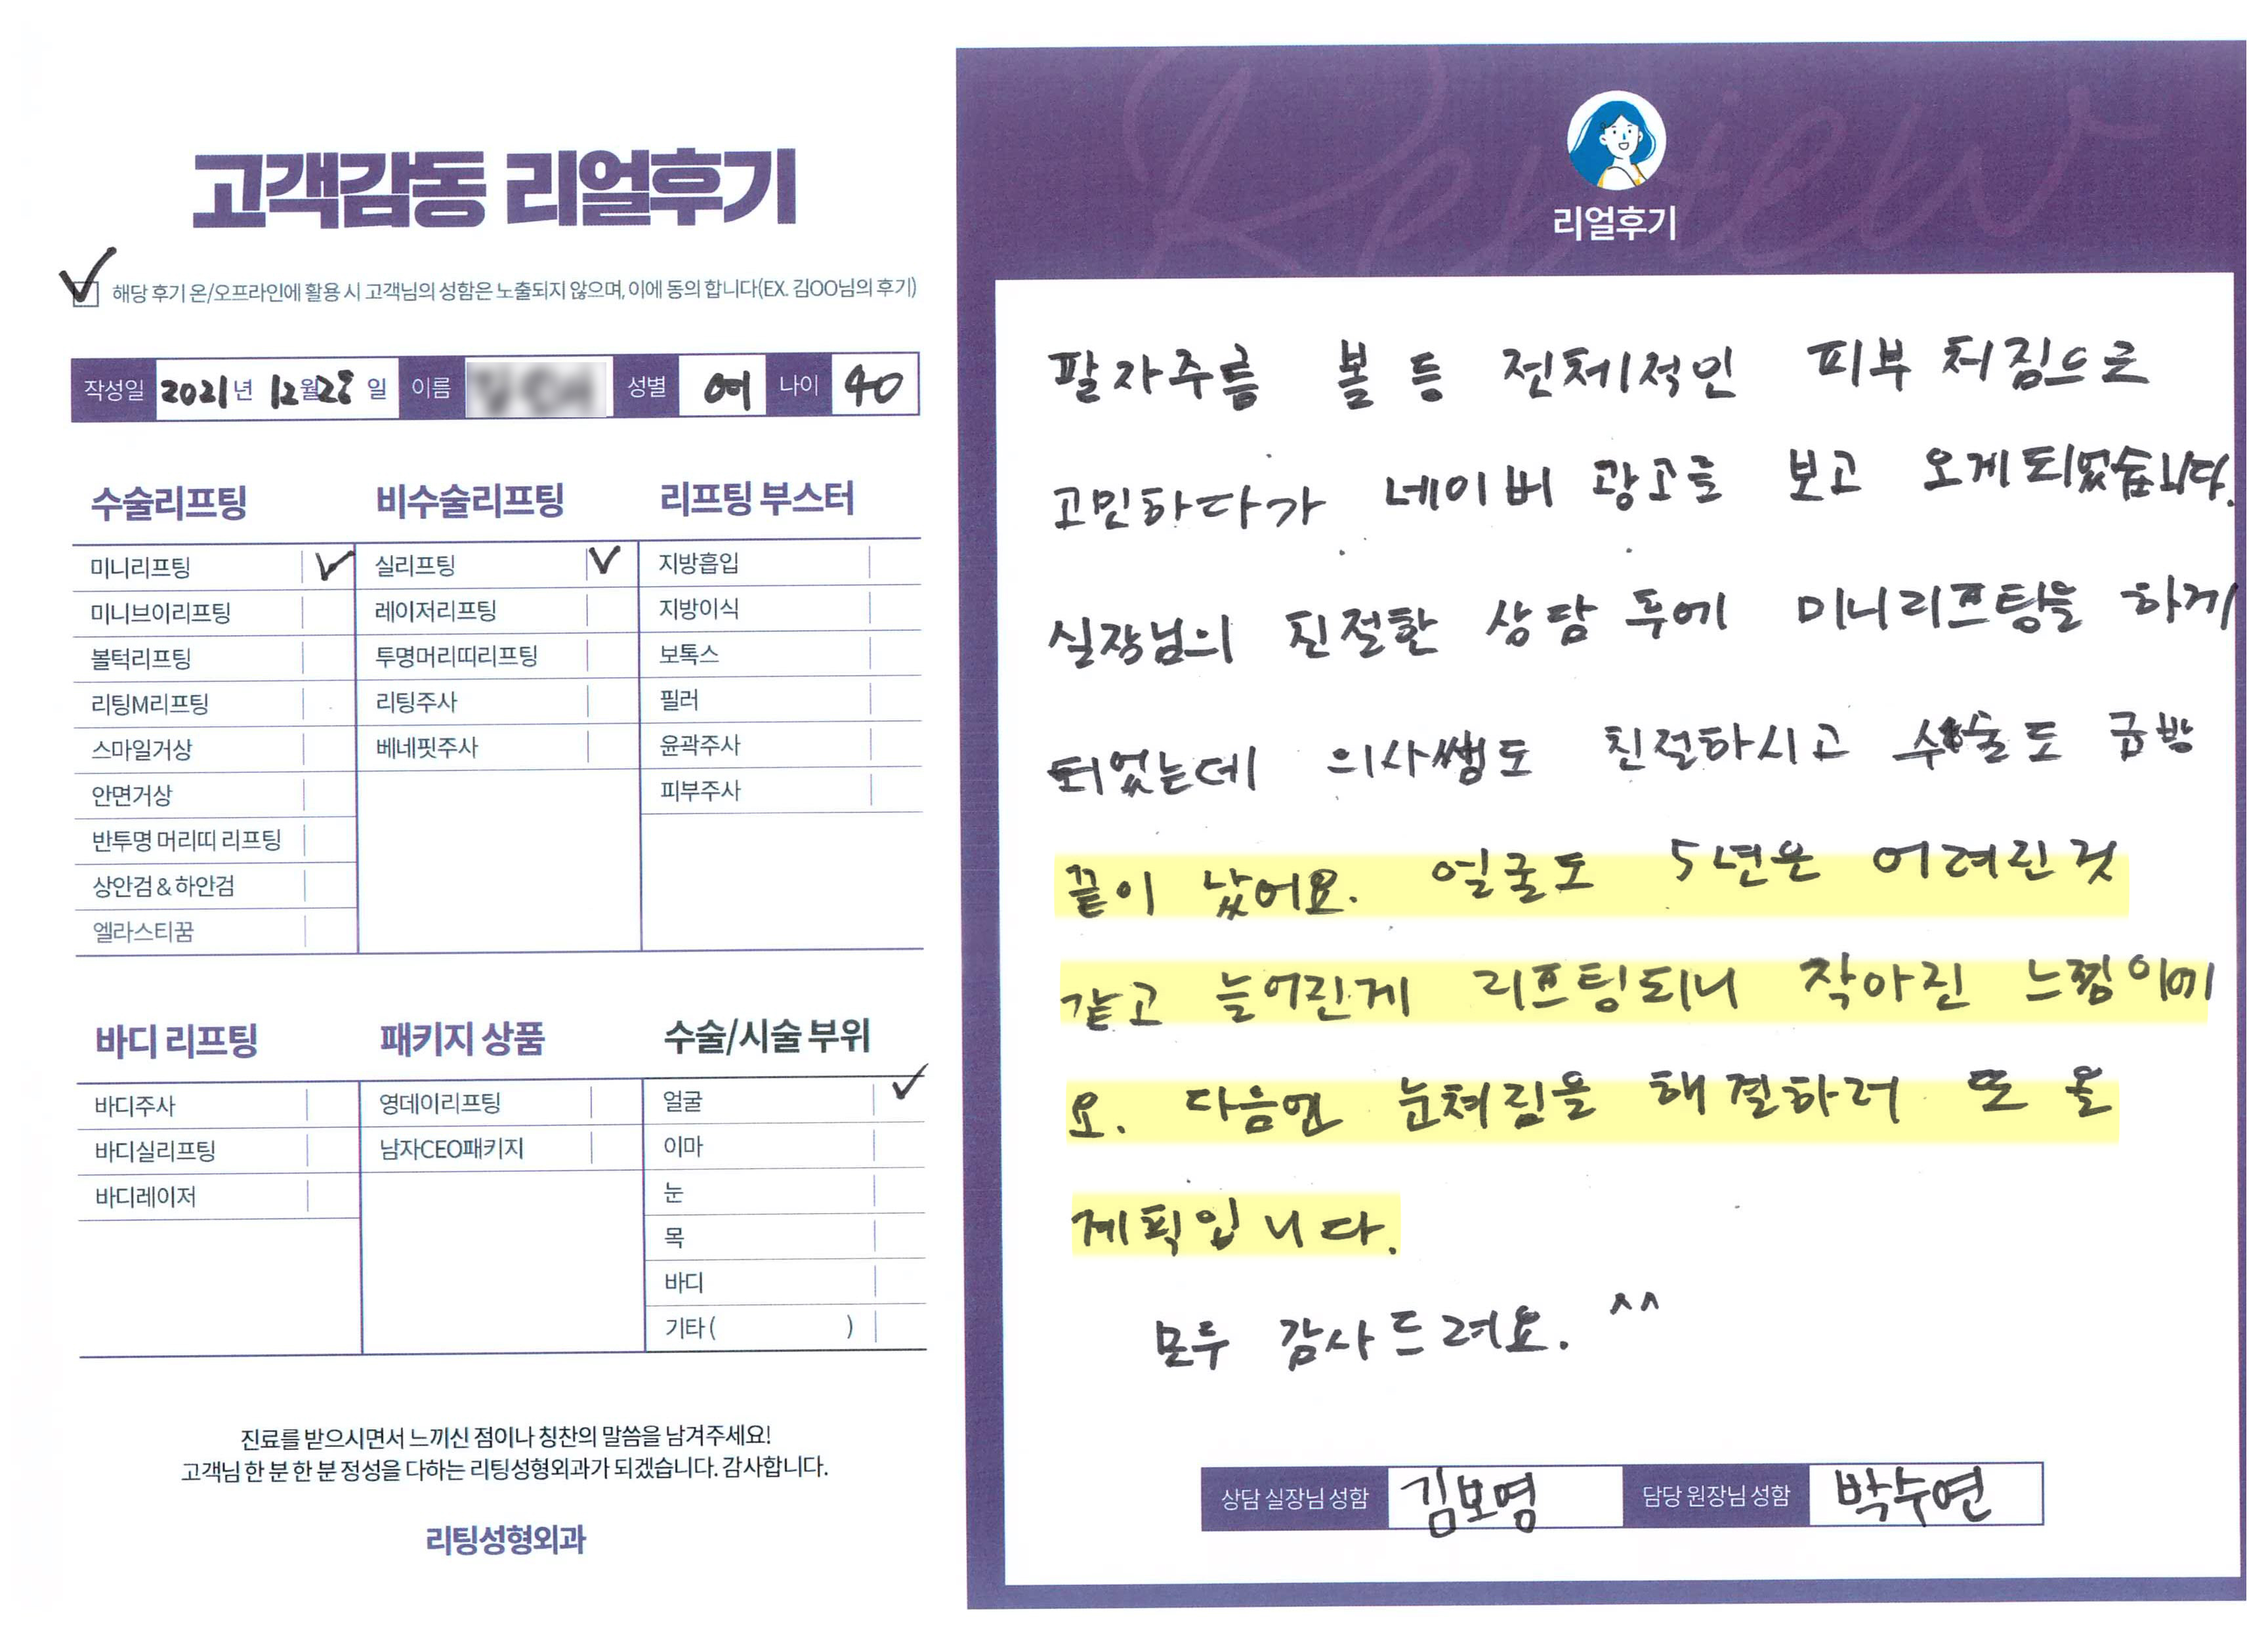 고객감동 리얼후기
해당 후기 온/오프라인에 활용 시 고객님의 성함은 노출되지 않으며, 이에 동의 합니다(EX. 김OO님의 후기)
작성일 2021년 12월28일 이름 성별 여 나이 40
수술리프팅 비수술리프팅 리프팅 부스터
미니리프팅 실리프팅 지방흡입
미니브이리프팅 레이저리프팅 지방이식
볼턱리프팅 투명머리띠리프팅 보톡스
리팅M리프팅 리팅주사 필러
스마일거상 베네핏주사 윤곽주사
안면거상 피부주사
반투명 머리띠 리프팅
상안검 & 하안검
엘라스티꿈
바디 리프팅 패키지 상품 수술/시술 부위
바디주사 영데이리프팅 얼굴
바디실리프팅 남자CEO패키지 이마
바디레이저 눈
목
바디
기타 ( )
진료를 받으시면서 느끼신 점이나 칭찬의 말씀을 남겨주세요!
고객님 한 분 한 분 정성을 다하는 리팅성형외과가 되겠습니다. 감사합니다.
리팅성형외과
Review
리얼후기
팔자주름 볼 등 전체적인 피부 처짐으로
고민하다가 네이버 광고를 보고 오게되었습니다.
실장님의 친절한 상담 후에 미니리프팅을 하게
되었는데 의사쌤도 친절하시고 수술도 금방
끝이 났어요. 얼굴도 5년은 어려진것
같고 늘어진게 리프팅되니 작아진 느낌이에
요. 다음엔 눈쳐짐을 해결하러 또 올
계획입니다.
모두 감사드려요. ^^
상담 실장님 성함 김보영 담당 원장님 성함 박수연